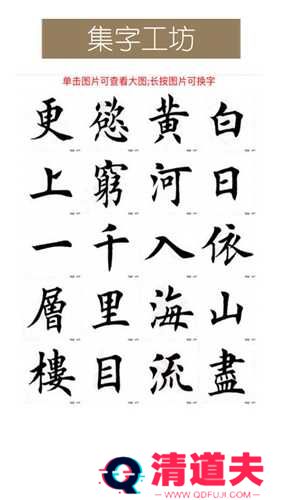 集字工坊
单击图片可查看大图;长按图片可换字
白日依山盡
黄河入海流
慾窮千里目
更上一層樓
清道夫
WWW.QDFUJI.COM